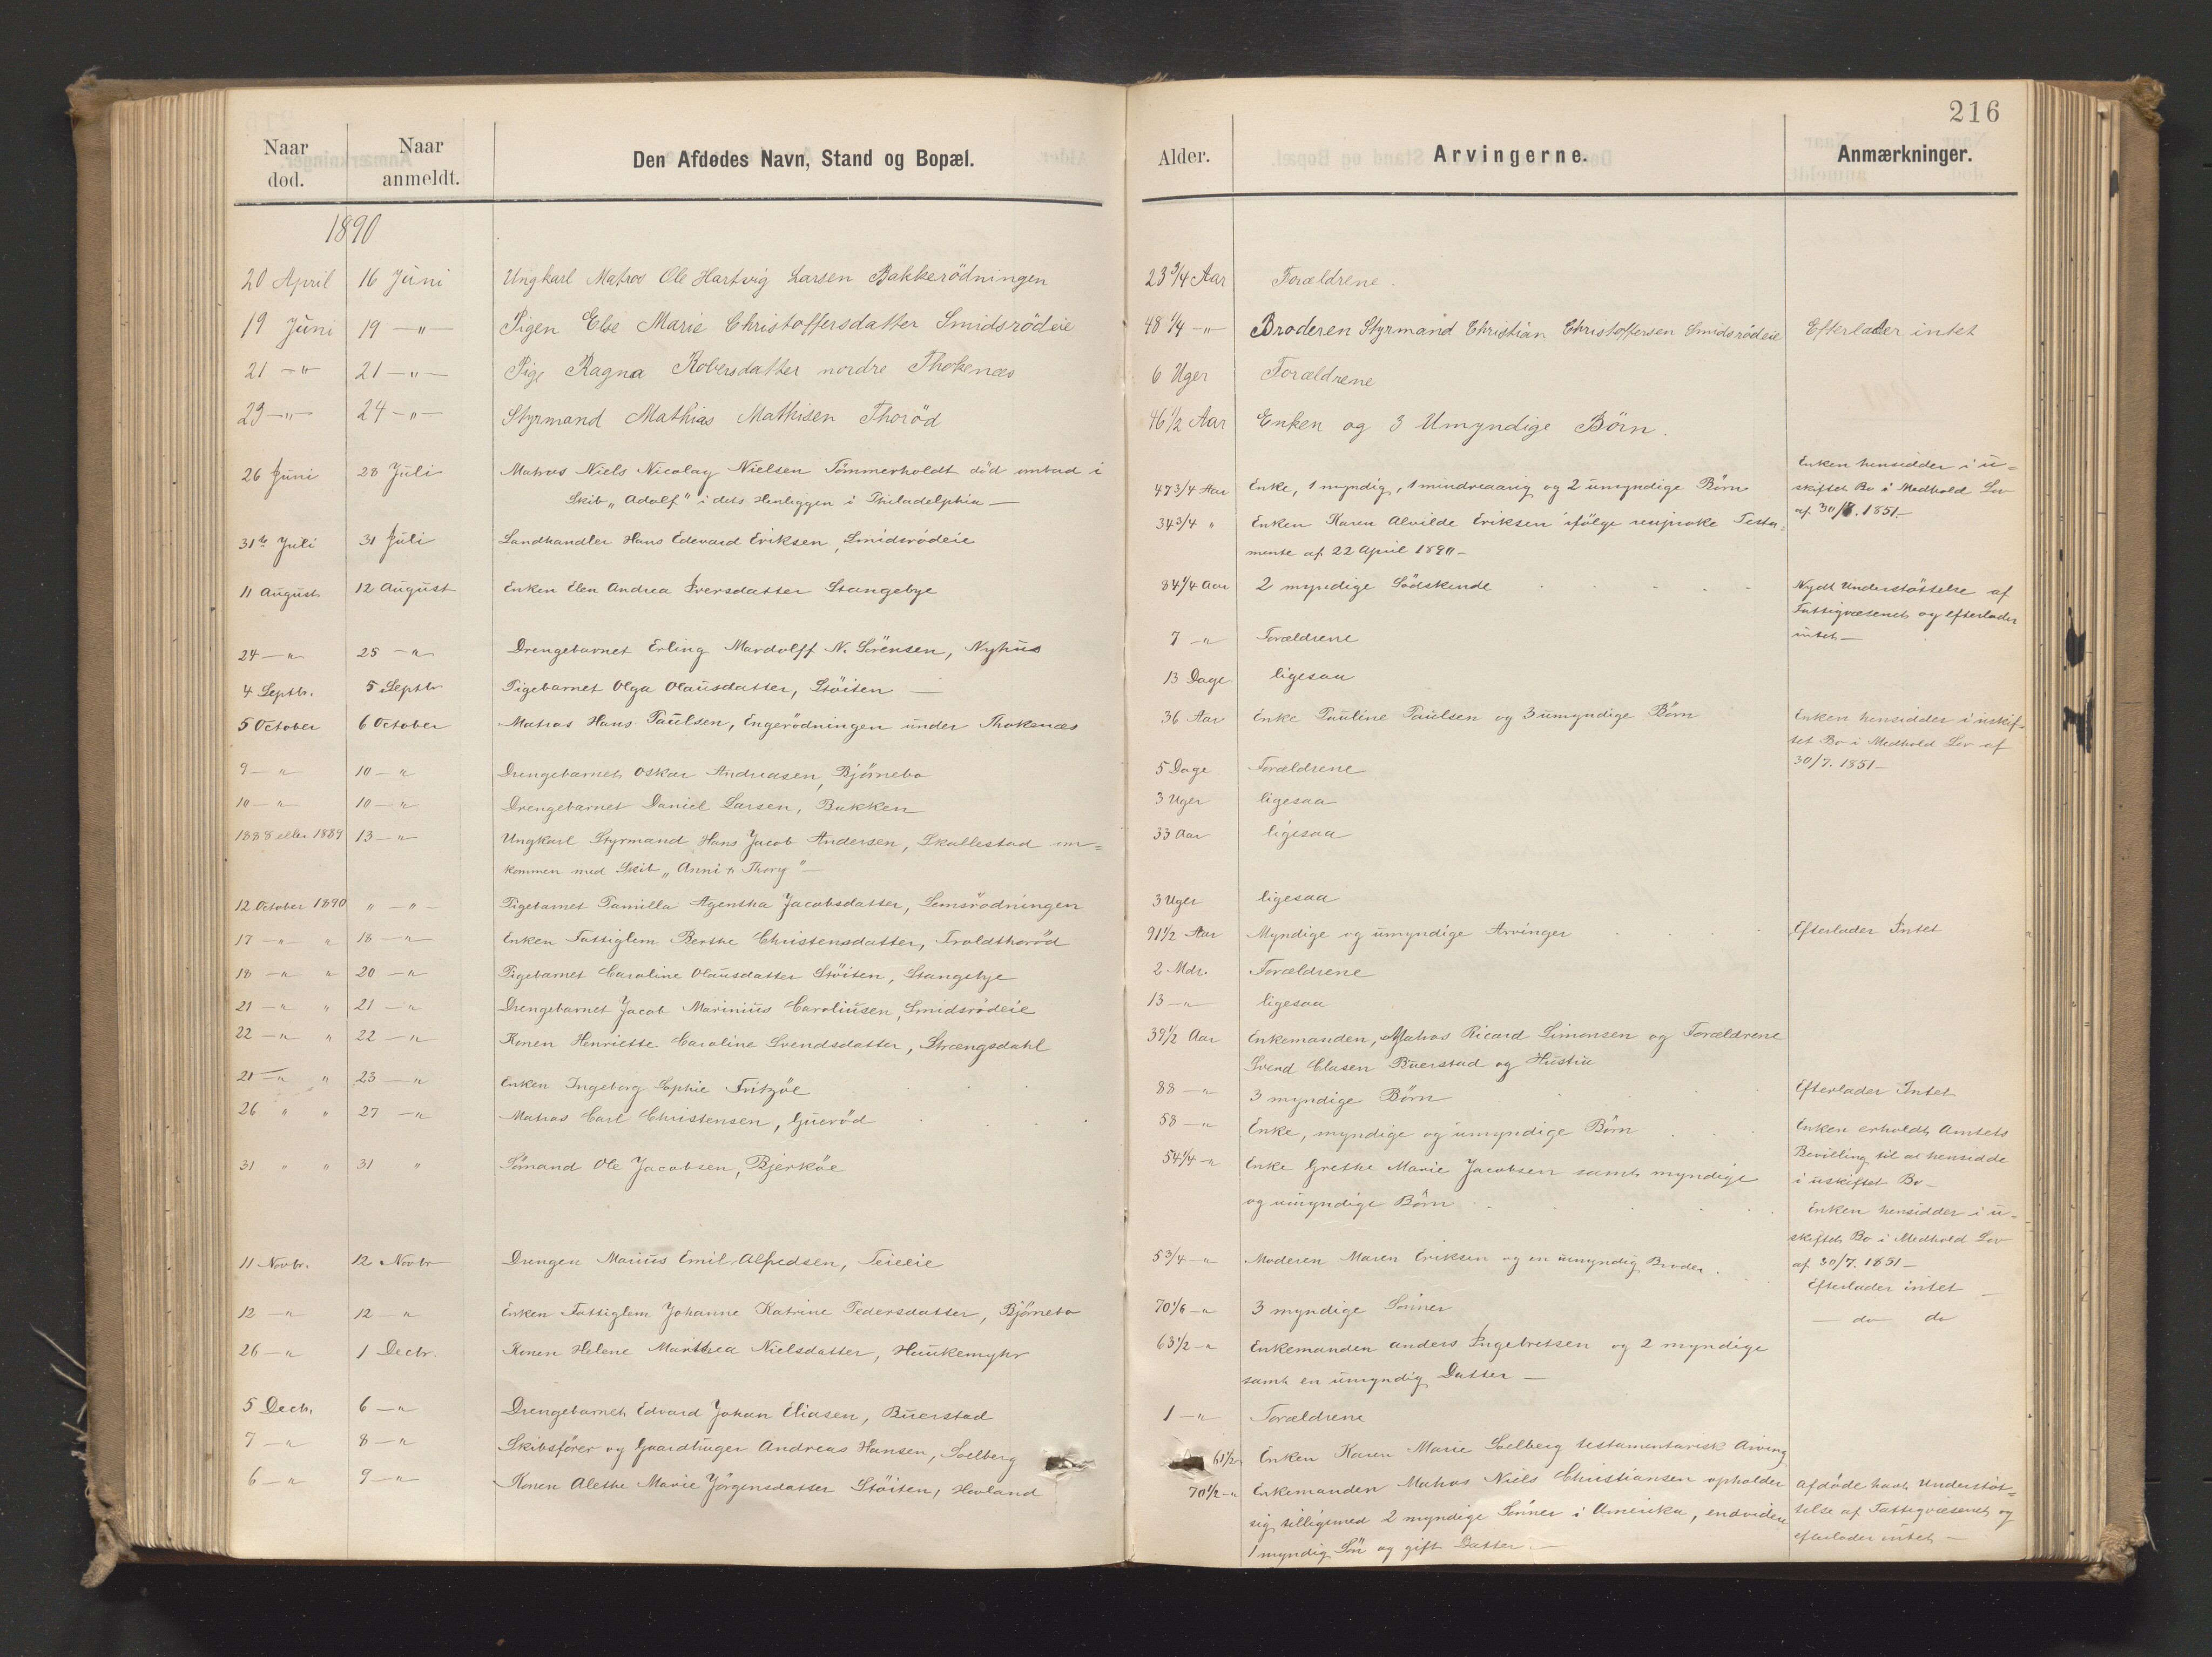 216
Naar død. Naar anmeldt. Den Afdødes Navn, Stand og Bopæl. Alder. Arvingerne. Anmærkninger.
1890
20 April 16 Juni Ungkarl Matros Ole Hartvig Larsen Bakkerödningen 23 3/4 Aar Forældrene.
19 Juni 19 —"— Pigen Else Marie Christoffersdatter Smidsrödeie 48 1/4 —"— Broderen Styrmand Christian Christoffersen Smidsrödeie Efterlader intet
21 —"— 21 —"— Pige Ragna Robersdatter nordre Thokenæs 6 Uger Forældrene
23 —"— 24 —"— Styrmand Mathias Mathisen Thoröd 46 1/2 Aar Enken og 3 Umyndige Börn.
26 Juni 28 Juli Matros Niels Nicolay Nielsen Tömmerholdt död ombord i
Skib „Adolf" i dets Henliggen i Philadelphia —
47 3/4 Aar Enke, 1 myndig, 1 mindreaarig og 2 umyndige Börn
Enken hensidder i u=
skiftet Bo i Medhold Lov
af 30/7. 1851.—
31te Juli 31 Juli Landhandler Hans Edevard Eriksen, Smidsrödeie 34 3/4 " Enken Karen Alvilde Eriksen ifölge reciproke Testa-
mente af 22 April 1890—
11 August 12 August Enken Elen Andrea Iversdatter Stangebye 84 1/4 Aar 2 myndige Södskende
Nydt Understöttelse af
Fattigvæsenet og efterlader
intet—
24 —"— 25 —"— Drengebarnet Erling Mardolff N. Sörensen, Nyhus 7 —" Forældrene
4 Septbr. 5 Septbr Pigebarnet Olga Olausdatter, Stöiten — 13 Dage ligesaa
5 October 6 October Matros Hans Paulsen, Engerödningen under Thokenæs 36 Aar Enke Pauline Paulsen og 3 umyndige Börn
Enken hensidder i uskif-
tet Bo i Medhold Lov af
30/7. 1851—
9 —" 10 —" Drengebarnet Oskar Andreasen, Björnebo 5 Dage Forældrene
10 —" 10 —" Drengebarnet Daniel Larsen, Bakken 3 Uger ligesaa
1888 eller 1889 13 —" Ungkarl Styrmand Hans Jacob Andersen, Skallestad om=
kommen med Skib „Anni &
33 Aar ligesaa
12 October 1890 " —"— Pigebarnet Pamilla Agentha Jacobsdatter, Lemsrödningen 3 Uger ligesaa
17 —" " 18 —" Enken Fattiglem Berthe Christensdatter, Troldthoröd 91 1/2 Aar Myndige og umyndige Arvinger Efterlader Intet
18 —" " 20 —" Pigebarnet Caroline Olausdatter Stöiten, Stangebye 2 Mdr. Forældrene
21 —" " 21 —" Drengebarnet Jacob Marinius Caroliusen, Smidsrödeie 13 —" ligesaa
22 —" " 22 —" Konen Henriette Caroline Svendsdatter, Strængsdahl 39 1/2 Aar Enkemanden, Matros Ricard Simonsen og Forældrene
Svend Clasen Buerstad og Hustru
21 —" " 23 —" Enken Ingeborg Sophie Fritzöe 88 —" 3 myndige Börn Efterlader Intet
26 " " 27 —" Matros Carl Christensen, Gueröd 58 —" Enke, myndige og umyndige Börn
Enken erholdt Amtets
Bevilling til at hensidde
i uskiftet Bo—
31 " " 31 " Sömand Ole Jacobsen, Bjerköe 54 1/4 —" Enke Grethe Marie Jacobsen samt myndige
og umyndige Börn
Enken hensidder i u=
skiftet Bo i Medhold Lov
af 30/7. 1851—
11 Novbr. 12 Novbr Drengen Marius Emil Alfredsen, Teieeie 5 3/4 —" Moderen Maren Eriksen og en umyndig Broder. Efterlader intet —
12 —" 12 —" Enken Fattiglem Johanne Katrine Pedersdatter, Björnebo 70 1/6 —" 3 myndige Sönner — do do
26 —" 1 Decbr. Konen Helene Marthea Nielsdatter, Haukemyhr 63 1/2 —" Enkemanden Anders Ingebretsen og 2 myndige
samt en umyndig Datter —
5 Decb. 6 —" Drengebarnet Edvard Johan Eliasen, Buerstad 1 —" Forældrene
7 —" 8 —" Skibsförer og Gaardbruger Andreas Hansen, Soelberg 61 1/2 Enken Karen Marie Soelberg testamentarisk Arving
6 —" 9 —" Konen Alethe Marie Jörgensdatter Stöiten, Hovland 70 1/2 —" Enkemanden Matros Niels Christiansen opholder
sig tilligemed 2 myndige Sönner i Amerika, endvidere
1 myndig Sön og gift Datter.—
Afdöde havt Understöt=
telse af Fattigvæsenet og
efterlader intet —